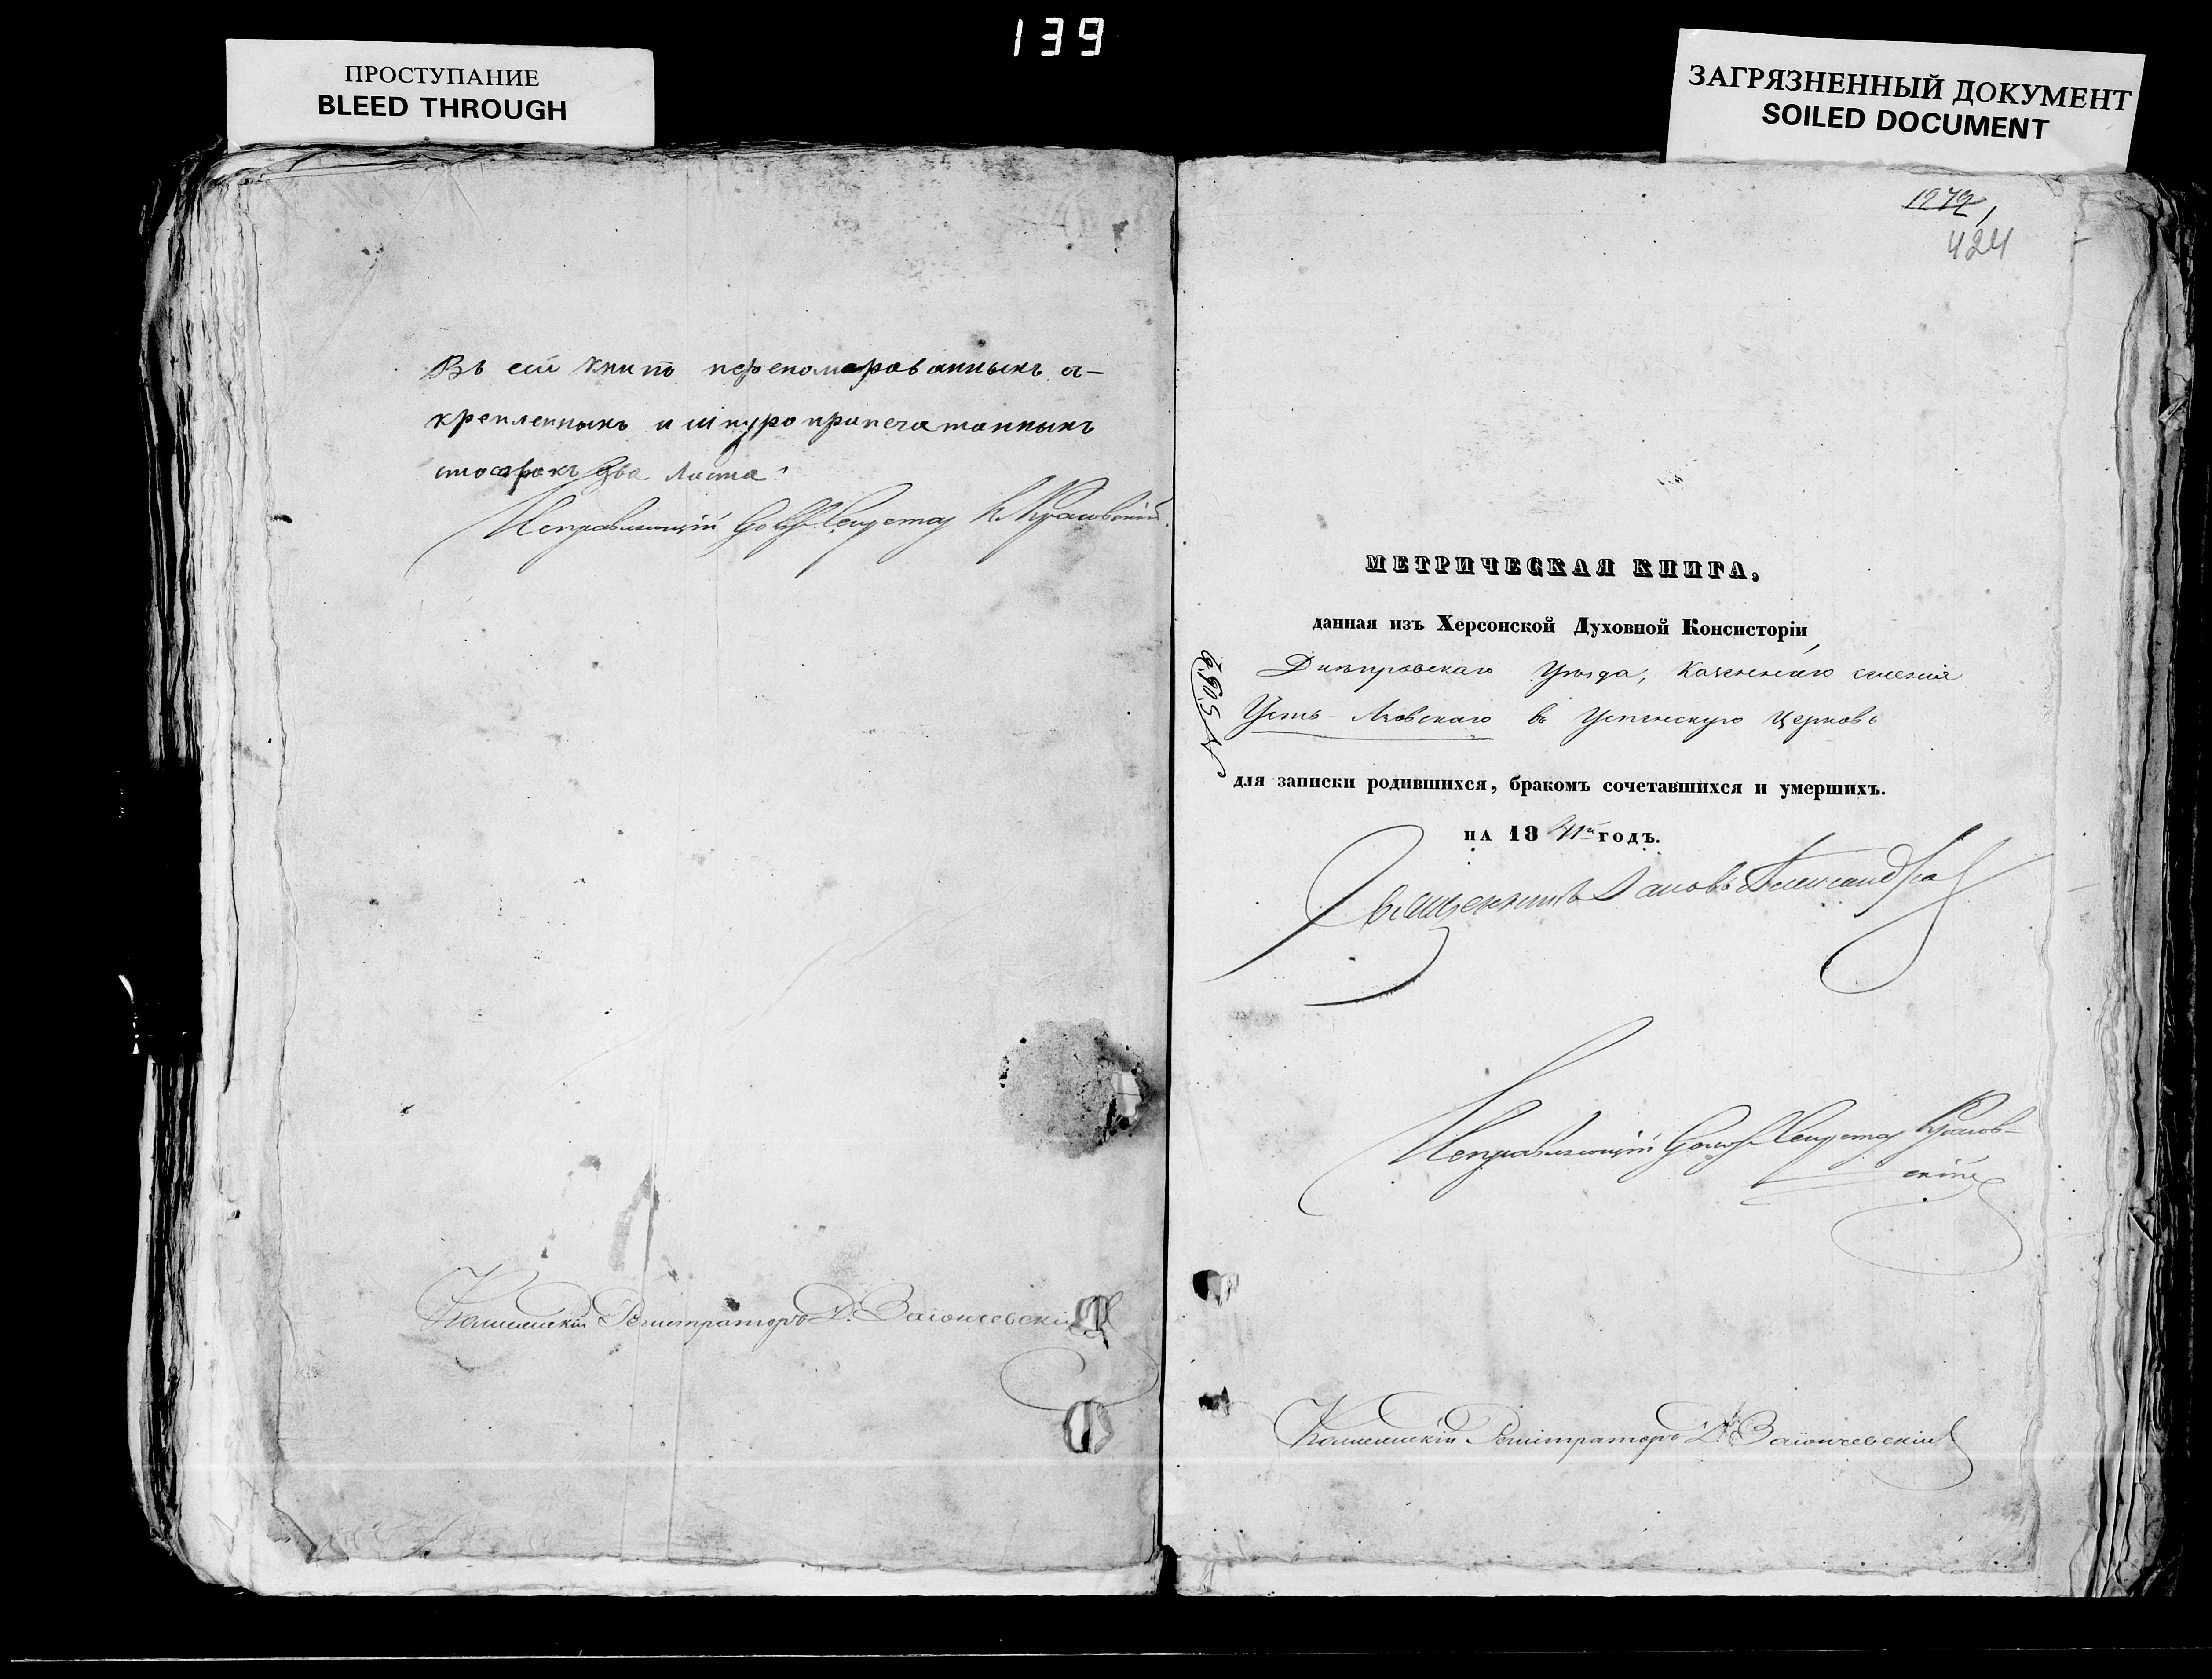 139
ПРОСТУПАНИЕ
BLEED THROUGH
ЗАГРЯЗНЕННЫЙ ДОКУМЕНТ
SOILED DOCUMENT
Въ сей книгѣ перенумерованныхъ
крепленныхъ и шнуроприпечатанныхъ
стосорокъ два листа
Исправляющій
Коллежскій Регистраторъ Д. Заіончевскій
1272
424
МЕТРИЧЕСКАЯ КНИГА,
данная изъ Херсонской Духовной Консисторіи,
Днѣпровскаго Уѣзда, Казеннаго селенія
Усть въ Успенскую Церковь
для записки родившихся, бракомъ сочетавшихся и умершихъ.
НА 1841й ГОДЪ.
Священникъ Іаковъ Александров
Исправляющій
Коллежскій Регистраторъ Д. Заіончевскій